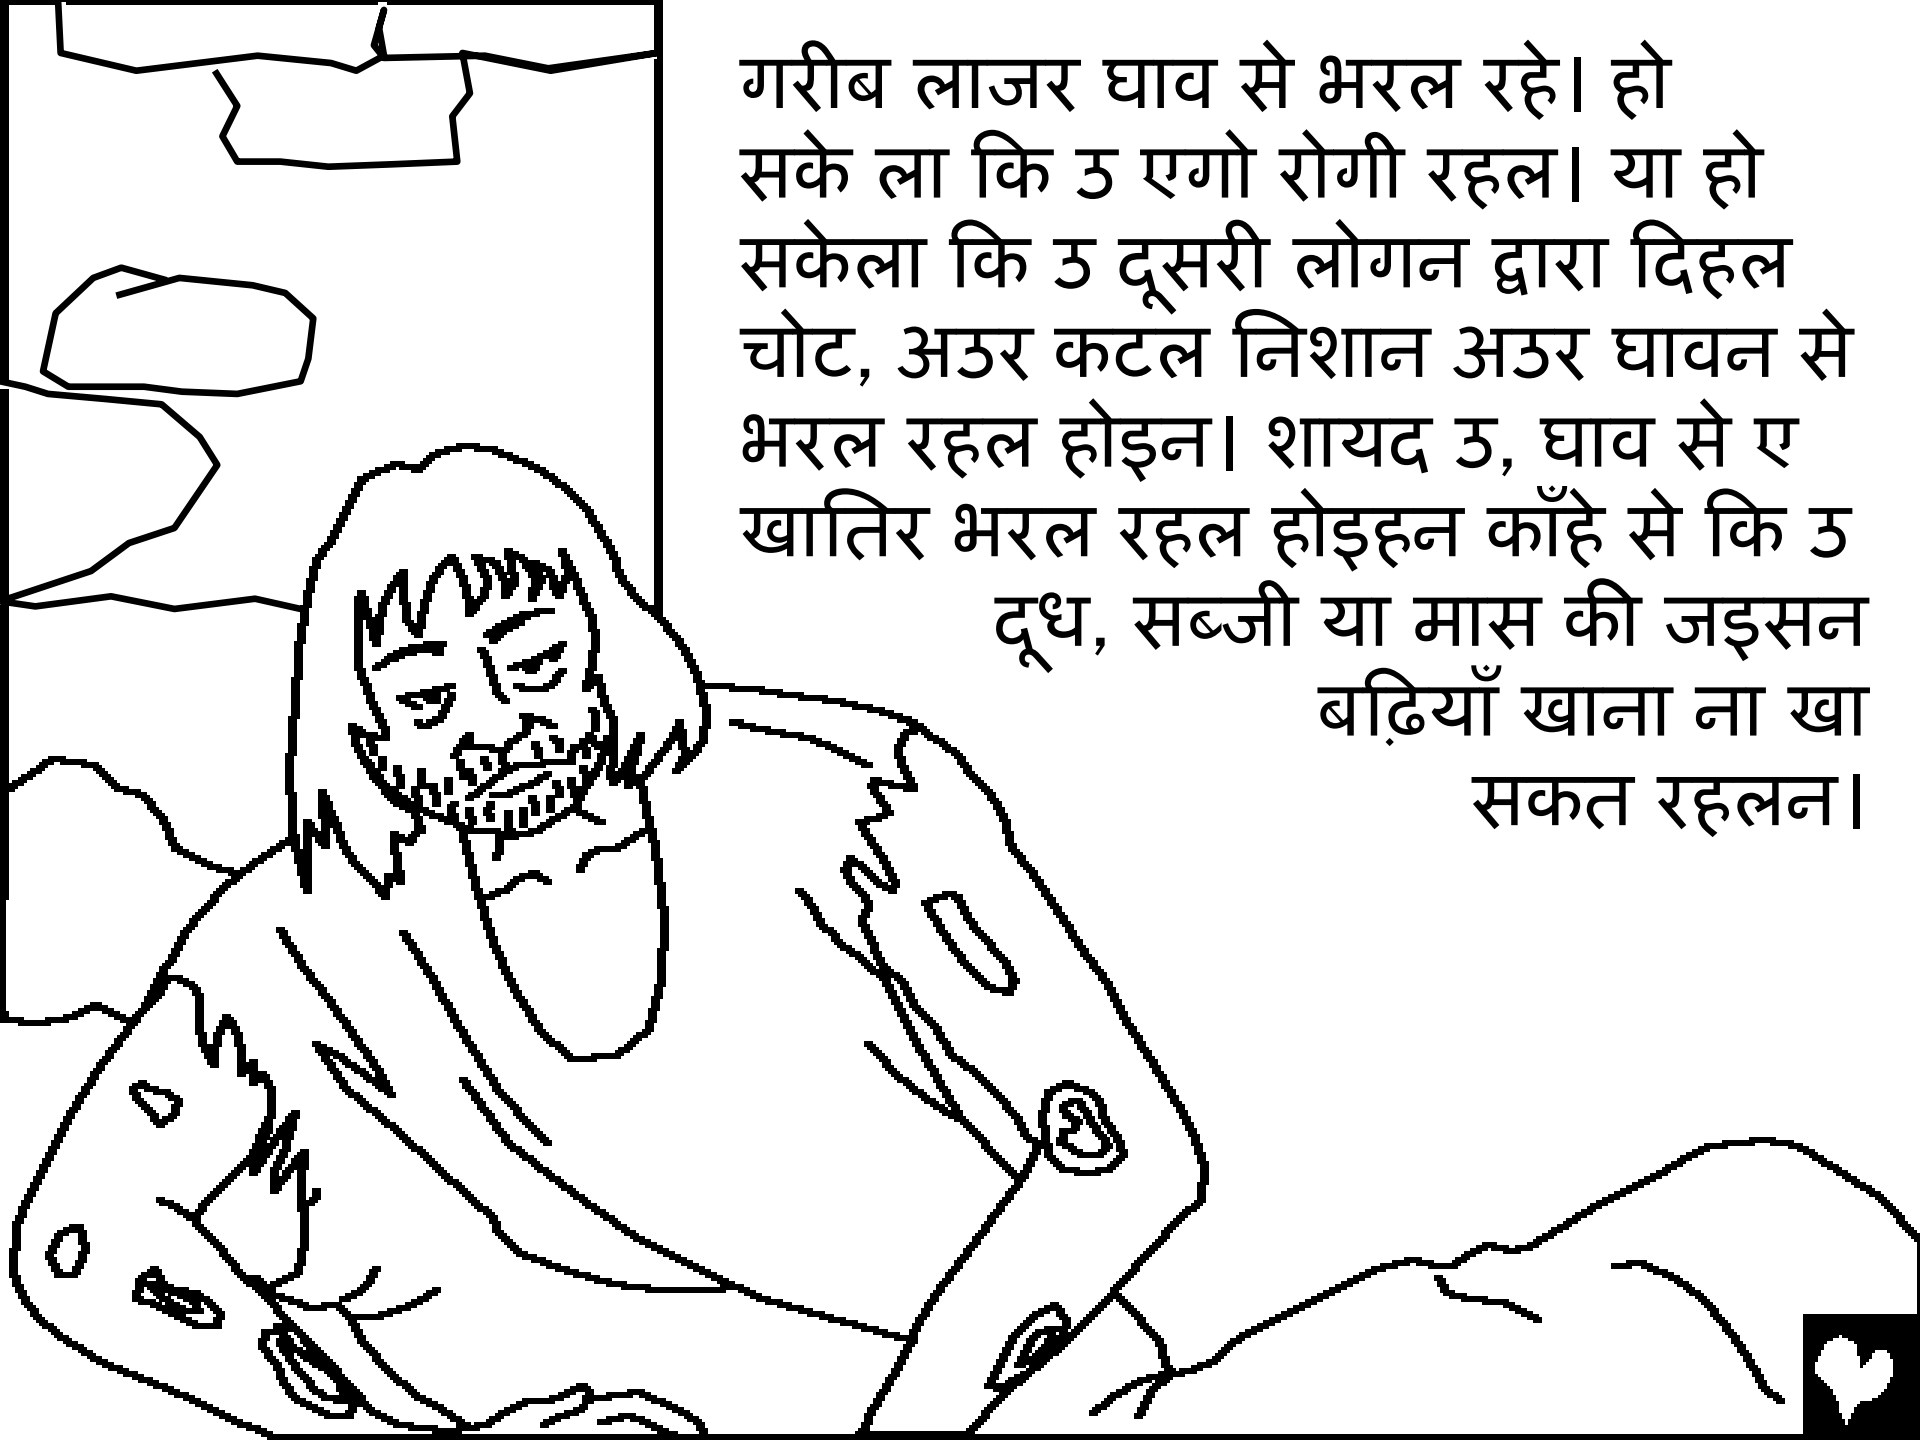 गरीब लाजर घाव से भरल रहे। हो
सके ला कि उ एगो रोगी रहल। या हो
सकेला कि उ दूसरी लोगन द्वारा दिहल
चोट, अउर कटल निशान अउर घावन से
भरल रहल होइन। शायद उ, घाव से ए
खातिर भरल रहल होइहन काँहे से कि उ
दूध, सब्जी या मास की जइसन
बढ़ियाँ खाना ना खा
सकत रहलन।